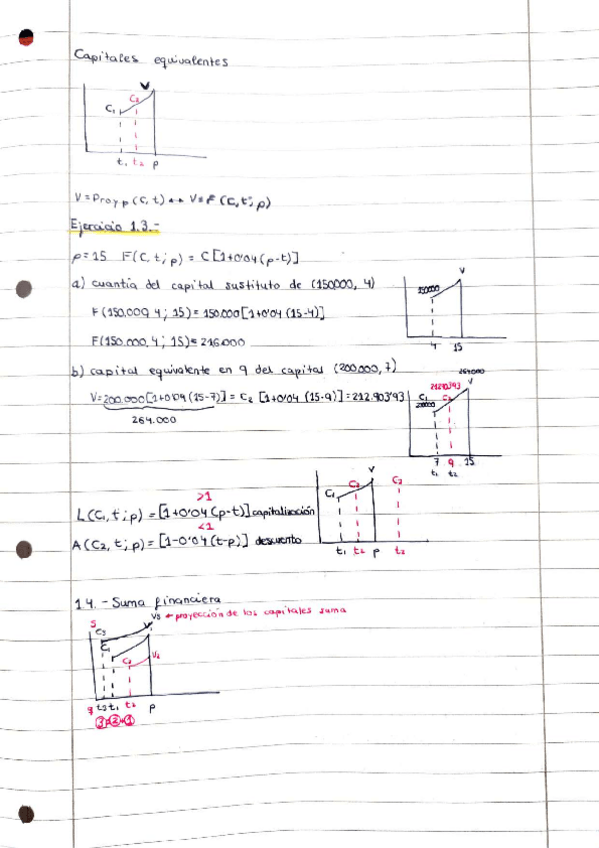 Capitales equivalentes
V
C₂
C₁
t₁ t₂ p
V = Proy p (C, t) ↔ V = F (C, t; p)
Ejercicio 1.3.-
p = 15 F(C, t; p) = C [1+0'04 (p-t)]
a) cuantía del capital sustituto de (150000, 4)
F(150.000, 4; 15) = 150.000 [1+0'04 (15-4)]
F(150.000, 4; 15) = 216.000
V
150000
4 15
b) capital equivalente en 9 del capital (200.000, 7)
V = 200.000 [1+0'04 (15-7)] = C₂ [1+0'04 (15-9)] = 212.903'93
264.000
264.000
V
212.903'93
C₁ C₂
200000
7 9 15
t₁ t₂
>1
L(C₁, t; p) = [1+0'04 (p-t)] capitalización
<1
A(C₂, t; p) = [1-0'04 (t-p)] descuento
V
C₁ C₂ C₂
t₁ t₂ p t₂
1.4. - Suma financiera
V₃ ← proyección de los capitales suma
S
C₃ V₁
C₁
C₂ V₂
t₃ t₁ t₂ p
③=②+①